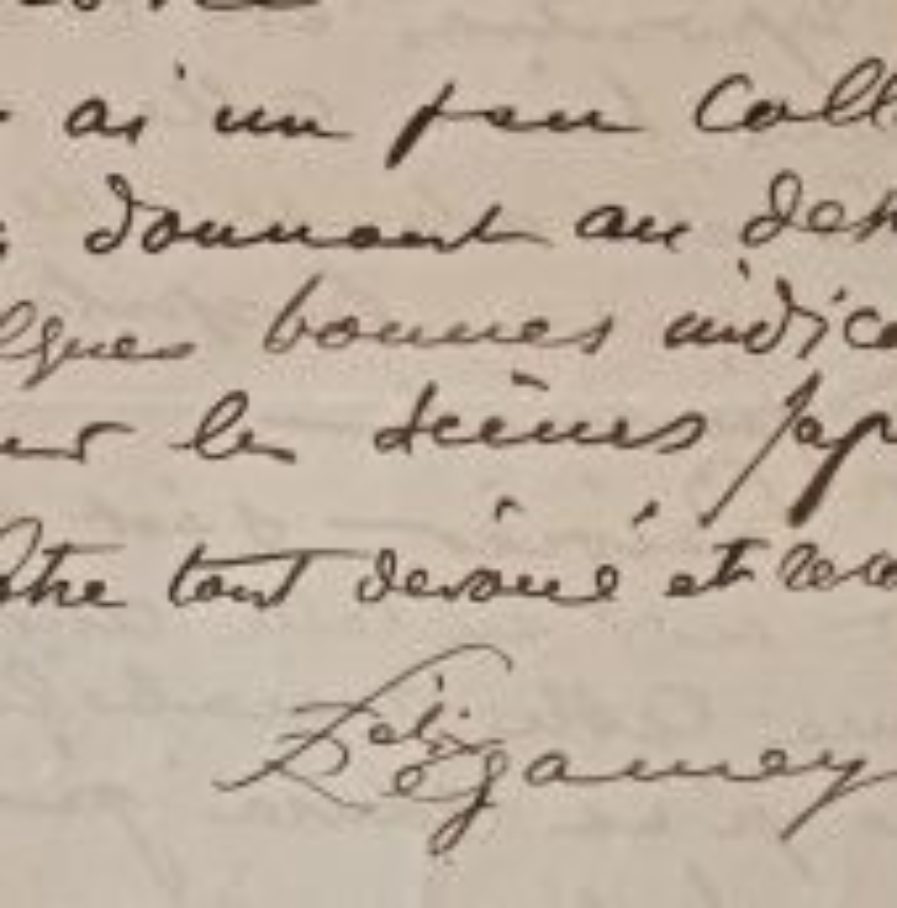 ai un peu coll
donnant au des
lques bonnes indica
ur les scènes jap
otre tout dévoué et reco
Félix Régamey